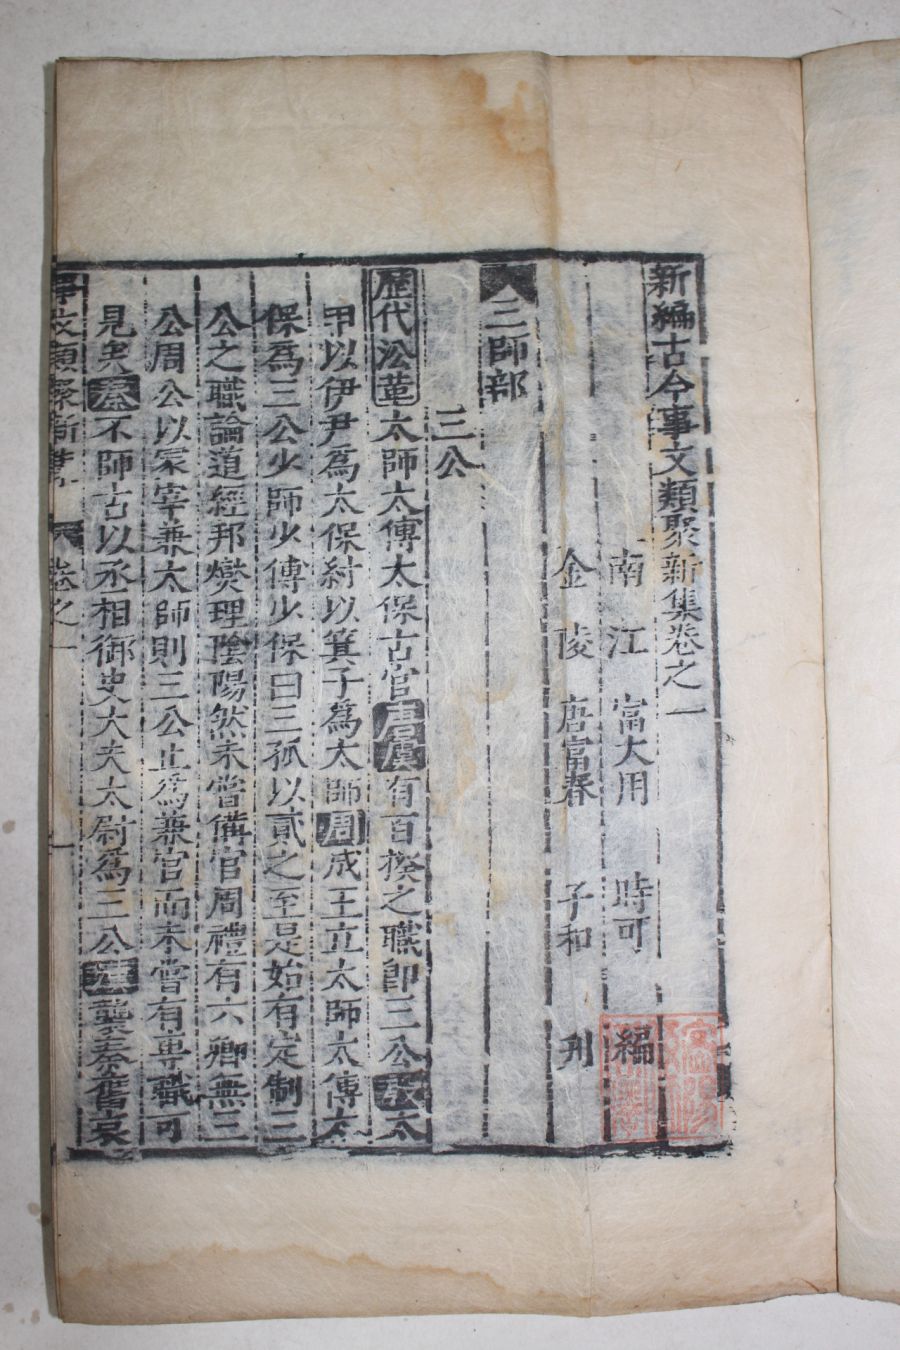 新編古今事文類聚新集卷之一
南江 富大用 時可 編
金陵 唐富春 子和 刋
三師部
三公
歷代㳂革 太師太傅太保古官唐虞有百揆之職卽三公殷太
甲以伊尹爲太保紂以箕子爲太師周成王立太師太傅太
保爲三公少師少傅少保曰三孤以貳之至是始有定制三
公之職論道經邦燮理陰陽然未嘗備官周禮有六卿無三
公周公以冢宰兼太師則三公止爲兼官而未嘗有專職可
見矣秦不師古以丞相御史大夫太尉爲三公漢襲秦舊哀
事文類聚新集 卷之一 一